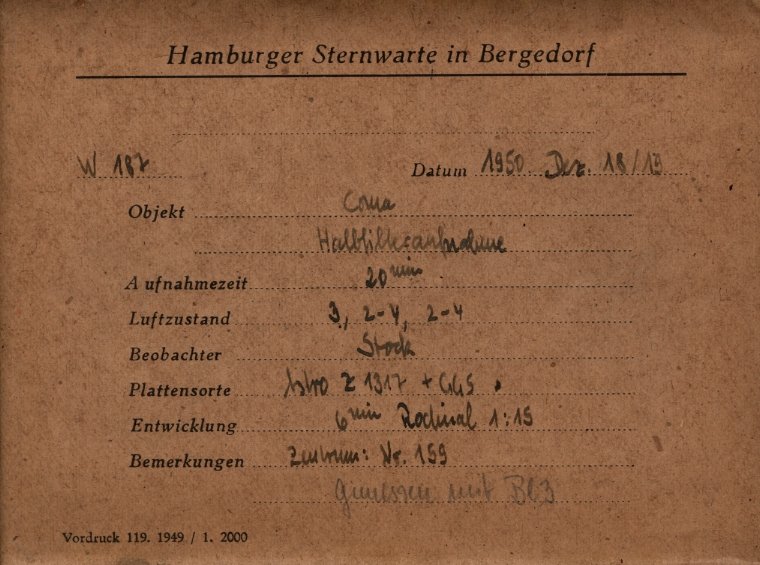 Hamburger Sternwarte in Bergedorf
W 187 Datum 1950 Dez. 18/19
Objekt Coma
Halbfilteraufnahme
Aufnahmezeit 20 min
Luftzustand 3, 2-4, 2-4
Beobachter Stock
Plattensorte Astro Z 1317 + GG5
Entwicklung 6 min Rodinal 1:15
Bemerkungen Zentrum: Nr. 159
Gemessen mit
Vordruck 119. 1949 / 1. 2000